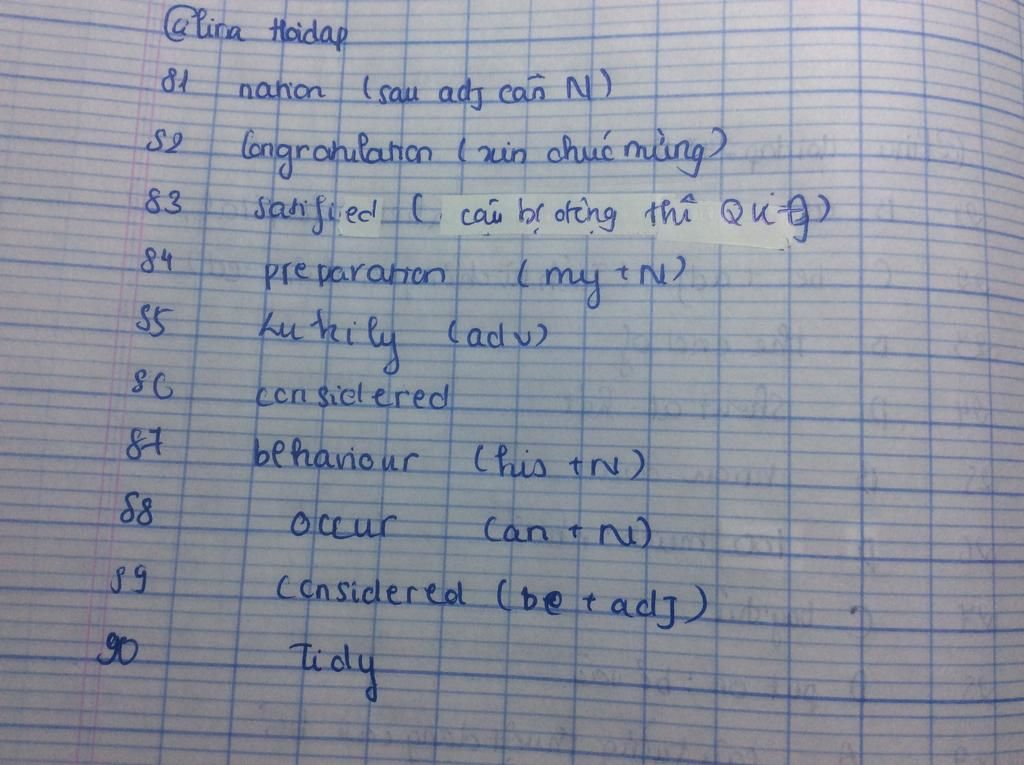 @lina Hoidap
81 nation (sau adj cần N)
82 Congratulation (xin chúc mừng)
83 satified ( câu bị động thì QKĐ)
84 preparation (my + N)
85 Luckily (adv)
86 considered
87 behaviour (his + N)
88 occur (an + N)
89 considered (be + adj)
90 Tidy